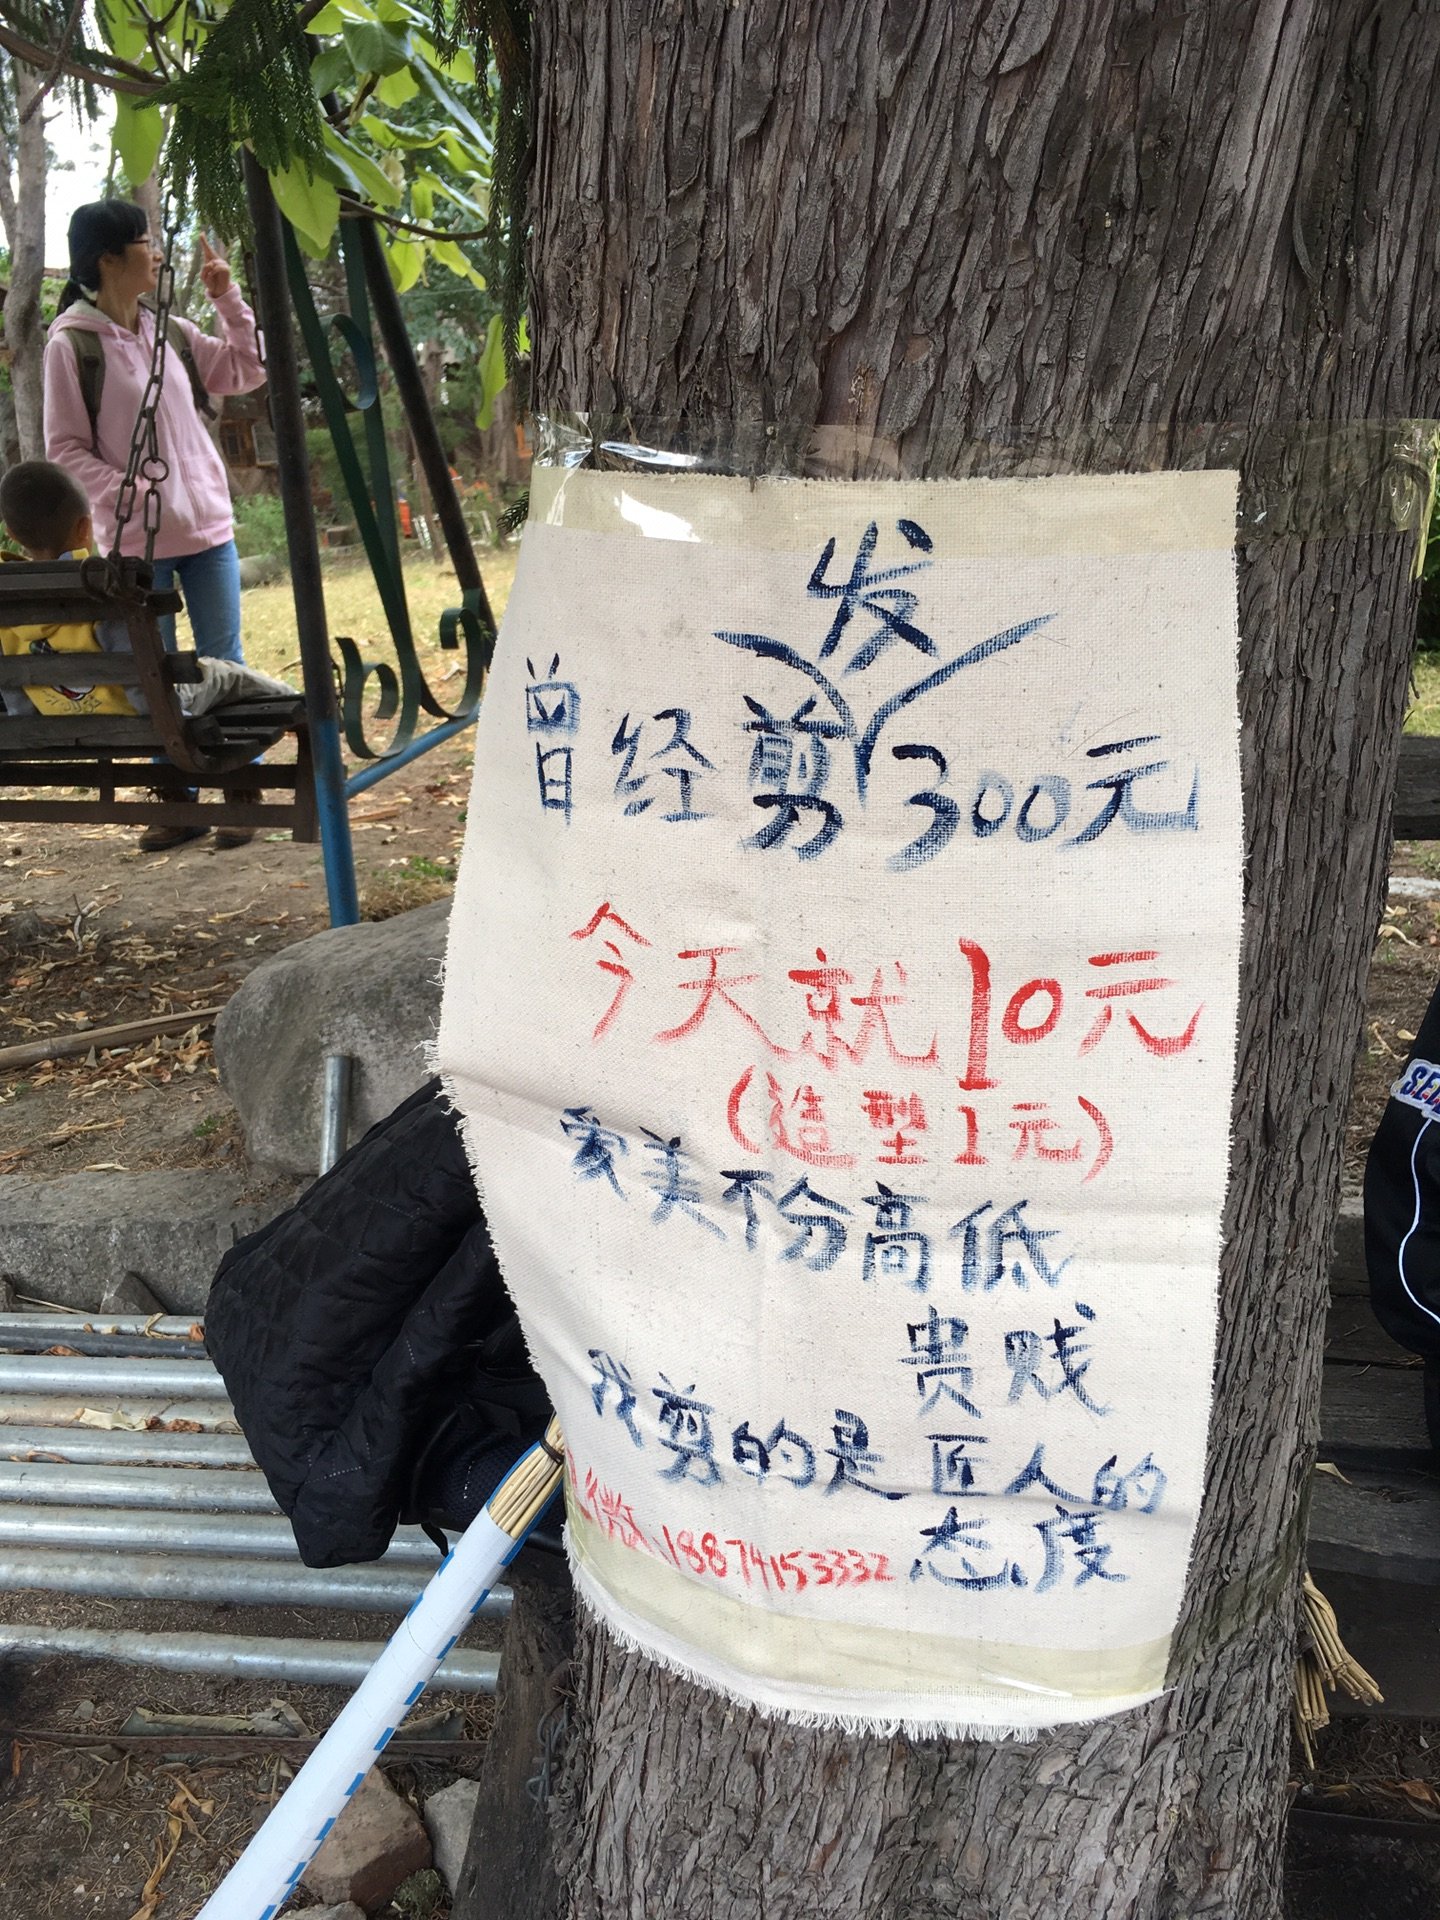 发
曾经剪300元
今天就10元
(造型1元)
爱美不分高低
贵贱
我剪的是匠人的
态度
18874153332